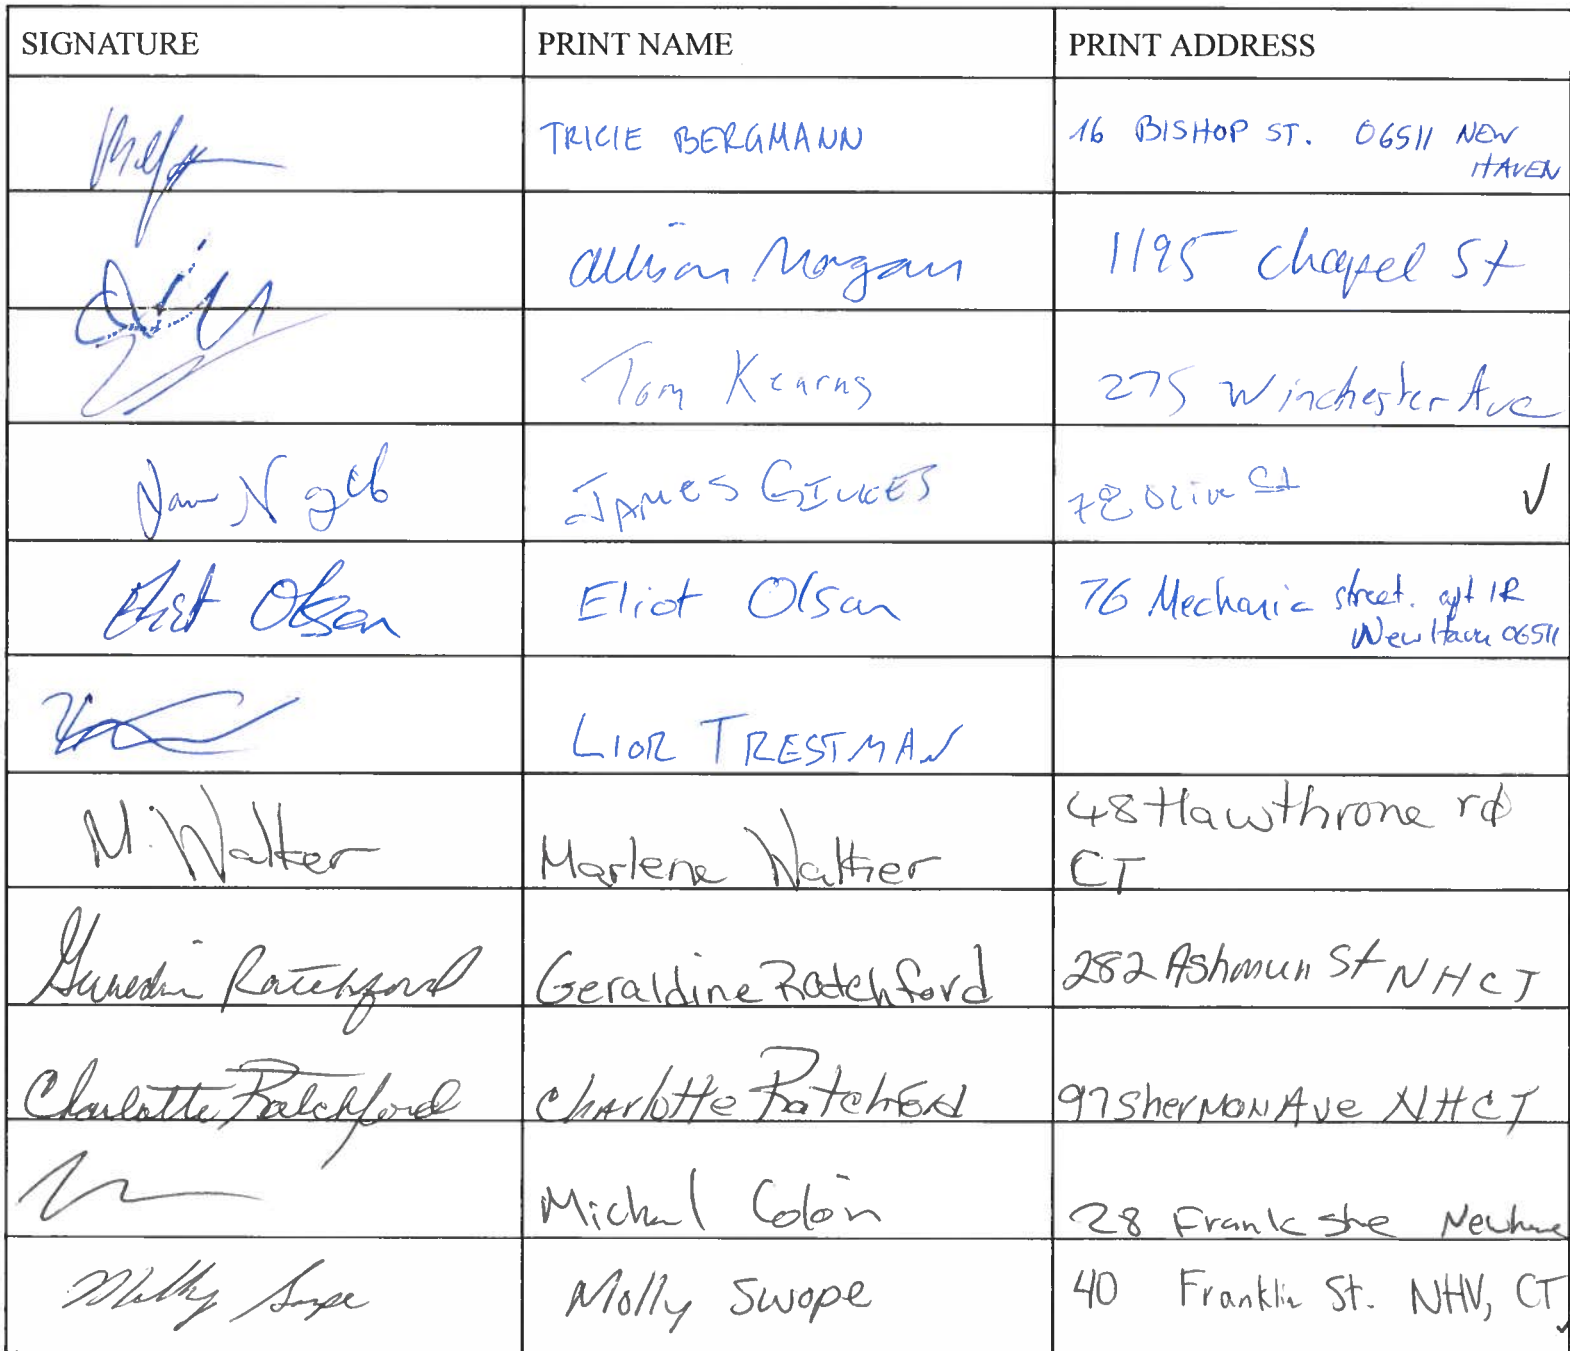 SIGNATURE PRINT NAME PRINT ADDRESS
TRICIE BERGMANN 16 BISHOP ST. 06511 NEW
HAVEN
Allison Morgan 1195 Chapel St
Tom Kearns 275 Winchester Ave
JAMES GILKES 78 Olive St ✓
Eliot Olsan Eliot Olsan 76 Mechanic street. apt 1R
New Haven 06511
LIOR TRESTMAN
M. Walker Marlene Walker 48 Hawthrone rd
CT
Geraldine Ratchford Geraldine Ratchford 282 Ashmun St NHCT
Charlotte Ratchford Charlotte Ratchford 97 Sherman Ave NHCT
Michael Colón 28 Frank
Molly Swope Molly Swope 40 Franklin St. NHV, CT